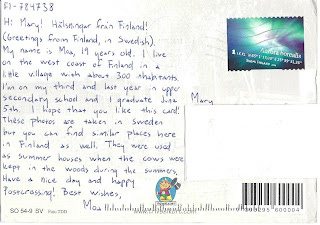 FI-784738
Hi Mary! Hälsningar från Finland!
(Greetings from Finland, in Swedish).
My name is Moa, 19 years old. I live
on the west coast of Finland in a
little village with about 300 inhabitants.
I'm on my third and last year in upper
secondary school and I graduate June
5th. I hope that you like this card!
These photos are taken in Sweden
but you can find similar places here
in Finland as well. They were used
as summer houses when the cows were
kept in the woods during the summers.
Have a nice day and happy
Postcrossing! Best wishes,
Moa
Mary
aurora borealis
1
SO 54-9 SV